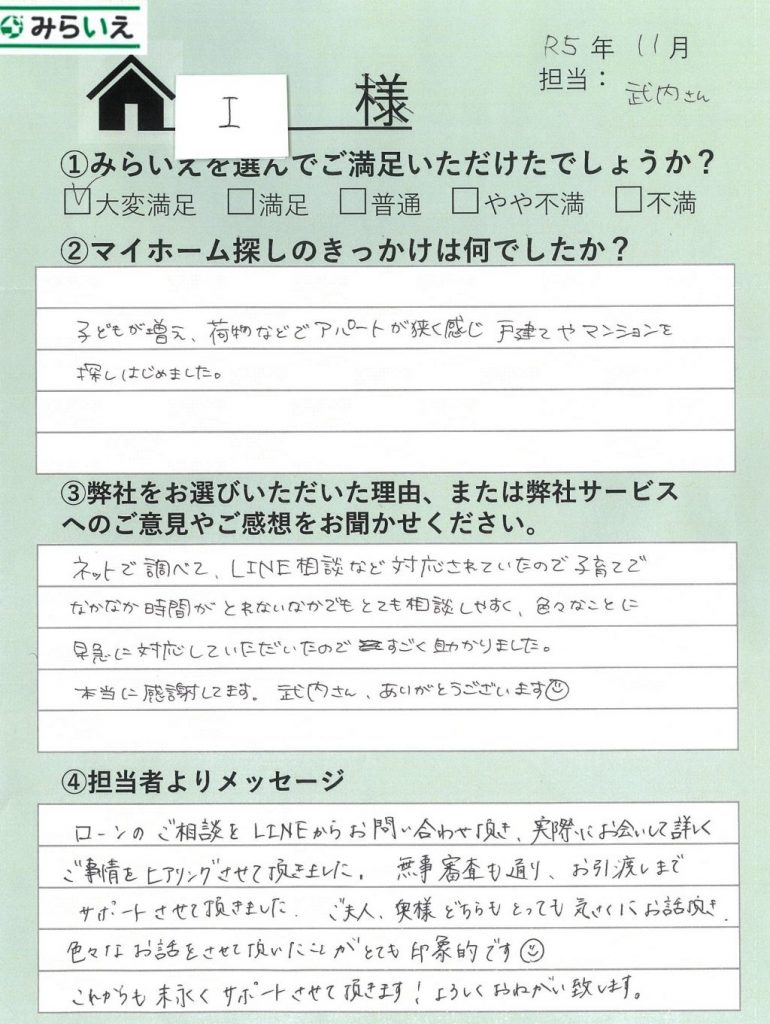 みらいえ
R5年 11月
担当： 武内さん
I 様
①みらいえを選んでご満足いただけたでしょうか？
☑大変満足 □満足 □普通 □やや不満 □不満
②マイホーム探しのきっかけは何でしたか？
子どもが増え、荷物などでアパートが狭く感じ 戸建てやマンションを
探しはじめました。
③弊社をお選びいただいた理由、または弊社サービス
へのご意見やご感想をお聞かせください。
ネットで調べて、LINE相談など対応されていたので子育てで
なかなか時間がとれないなかでもとても相談しやすく、色々なことに
早急に対応していただいたのですごく助かりました。
本当に感謝してます。武内さん、ありがとうございます☺
④担当者よりメッセージ
ローンのご相談をLINEからお問い合わせ頂き、実際にお会いして詳しく
ご事情をヒアリングさせて頂きました。無事審査も通り、お引渡しまで
サポートさせて頂きました。ご夫人、奥様どちらもとっても気さくにお話頂き、
色々なお話をさせて頂いたことがとても印象的です☺
これからも末永くサポートさせて頂きます！よろしくおねがい致します。